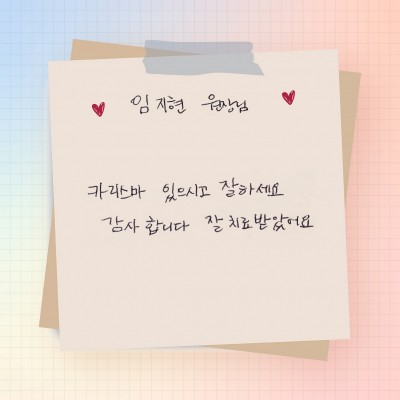 임지현 원장님
카리스마 있으시고 잘하세요
감사합니다 잘 치료받았어요